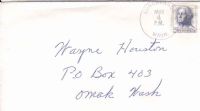 MAY
4
P.M.
Wayne Houston
P O Box 403
Omak Wash